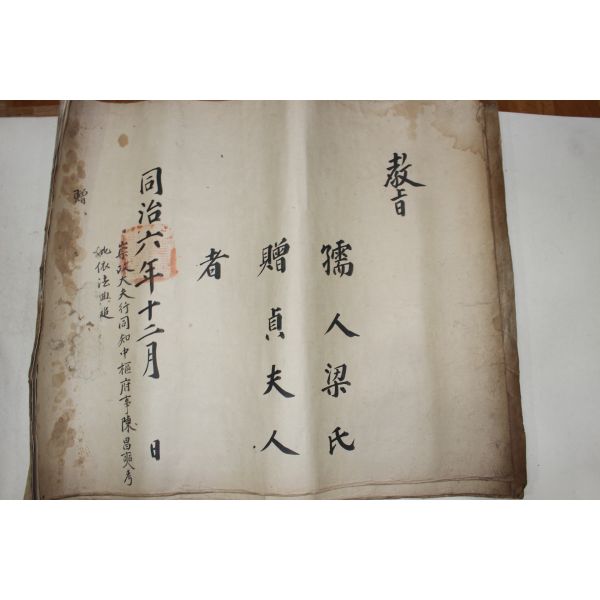 教旨
孺人梁氏
贈貞夫人
者
同治六年十二月 日
崇政大夫行同知中樞府事陳昌奭考
妣依法典追
贈